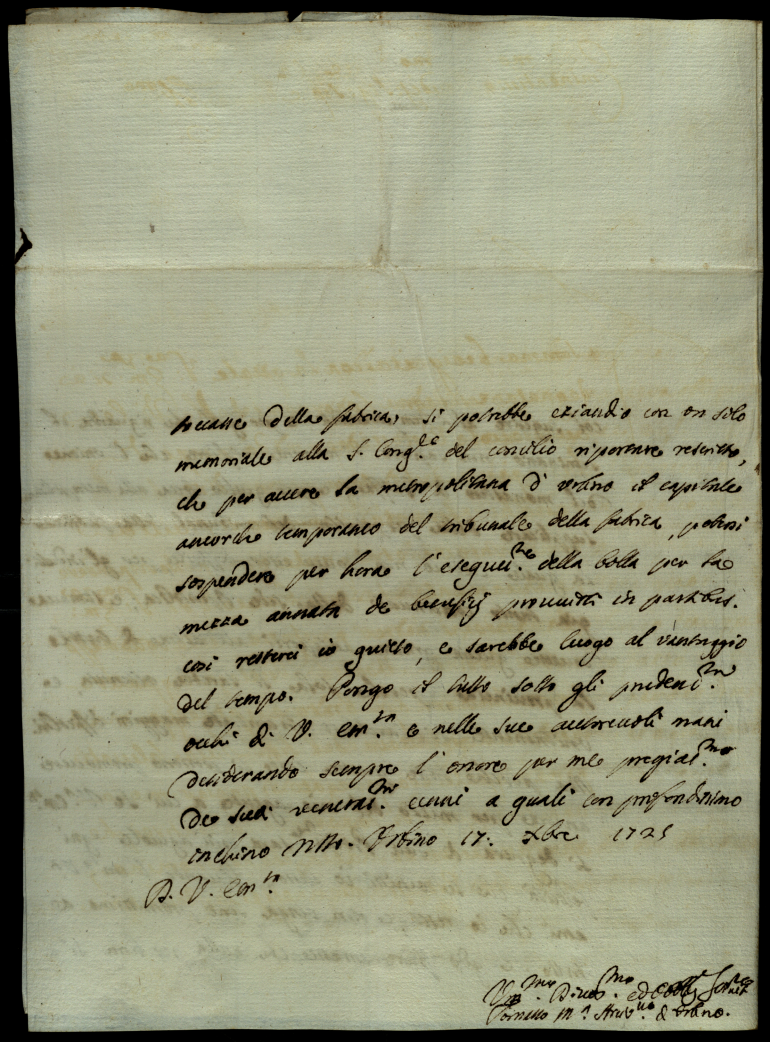 toccasse della fabrica, si potrebbe eziandio con un solo
memoriale alla S. Cong.ne del concilio riportare rescritto,
che per avere la metropolitana d'Urbino il capitale
ancorche temporaneo del tribunale della fabrica, potersi
sospendere per hora l'esequut.ne della bolla per la
mezza annata de beneficij provvisti in partibus.
cosi resterei io quieto, e sarebbe luogo al vantaggio
del tempo. Porgo il tutto sotto gli prudent.mi
occhi di V. Em.za e nelle sue autorevoli mani
desiderando sempre l'onore per me pregiat.mo
de suoi venerat.mi cenni a quali con profondissimo
inchino resto. Urbino 17: Xbre 1725
D. V. Em.za
Um.mo Divot.mo ed Obblig.
Tomaso M.a Arciv.vo d'Urbino.